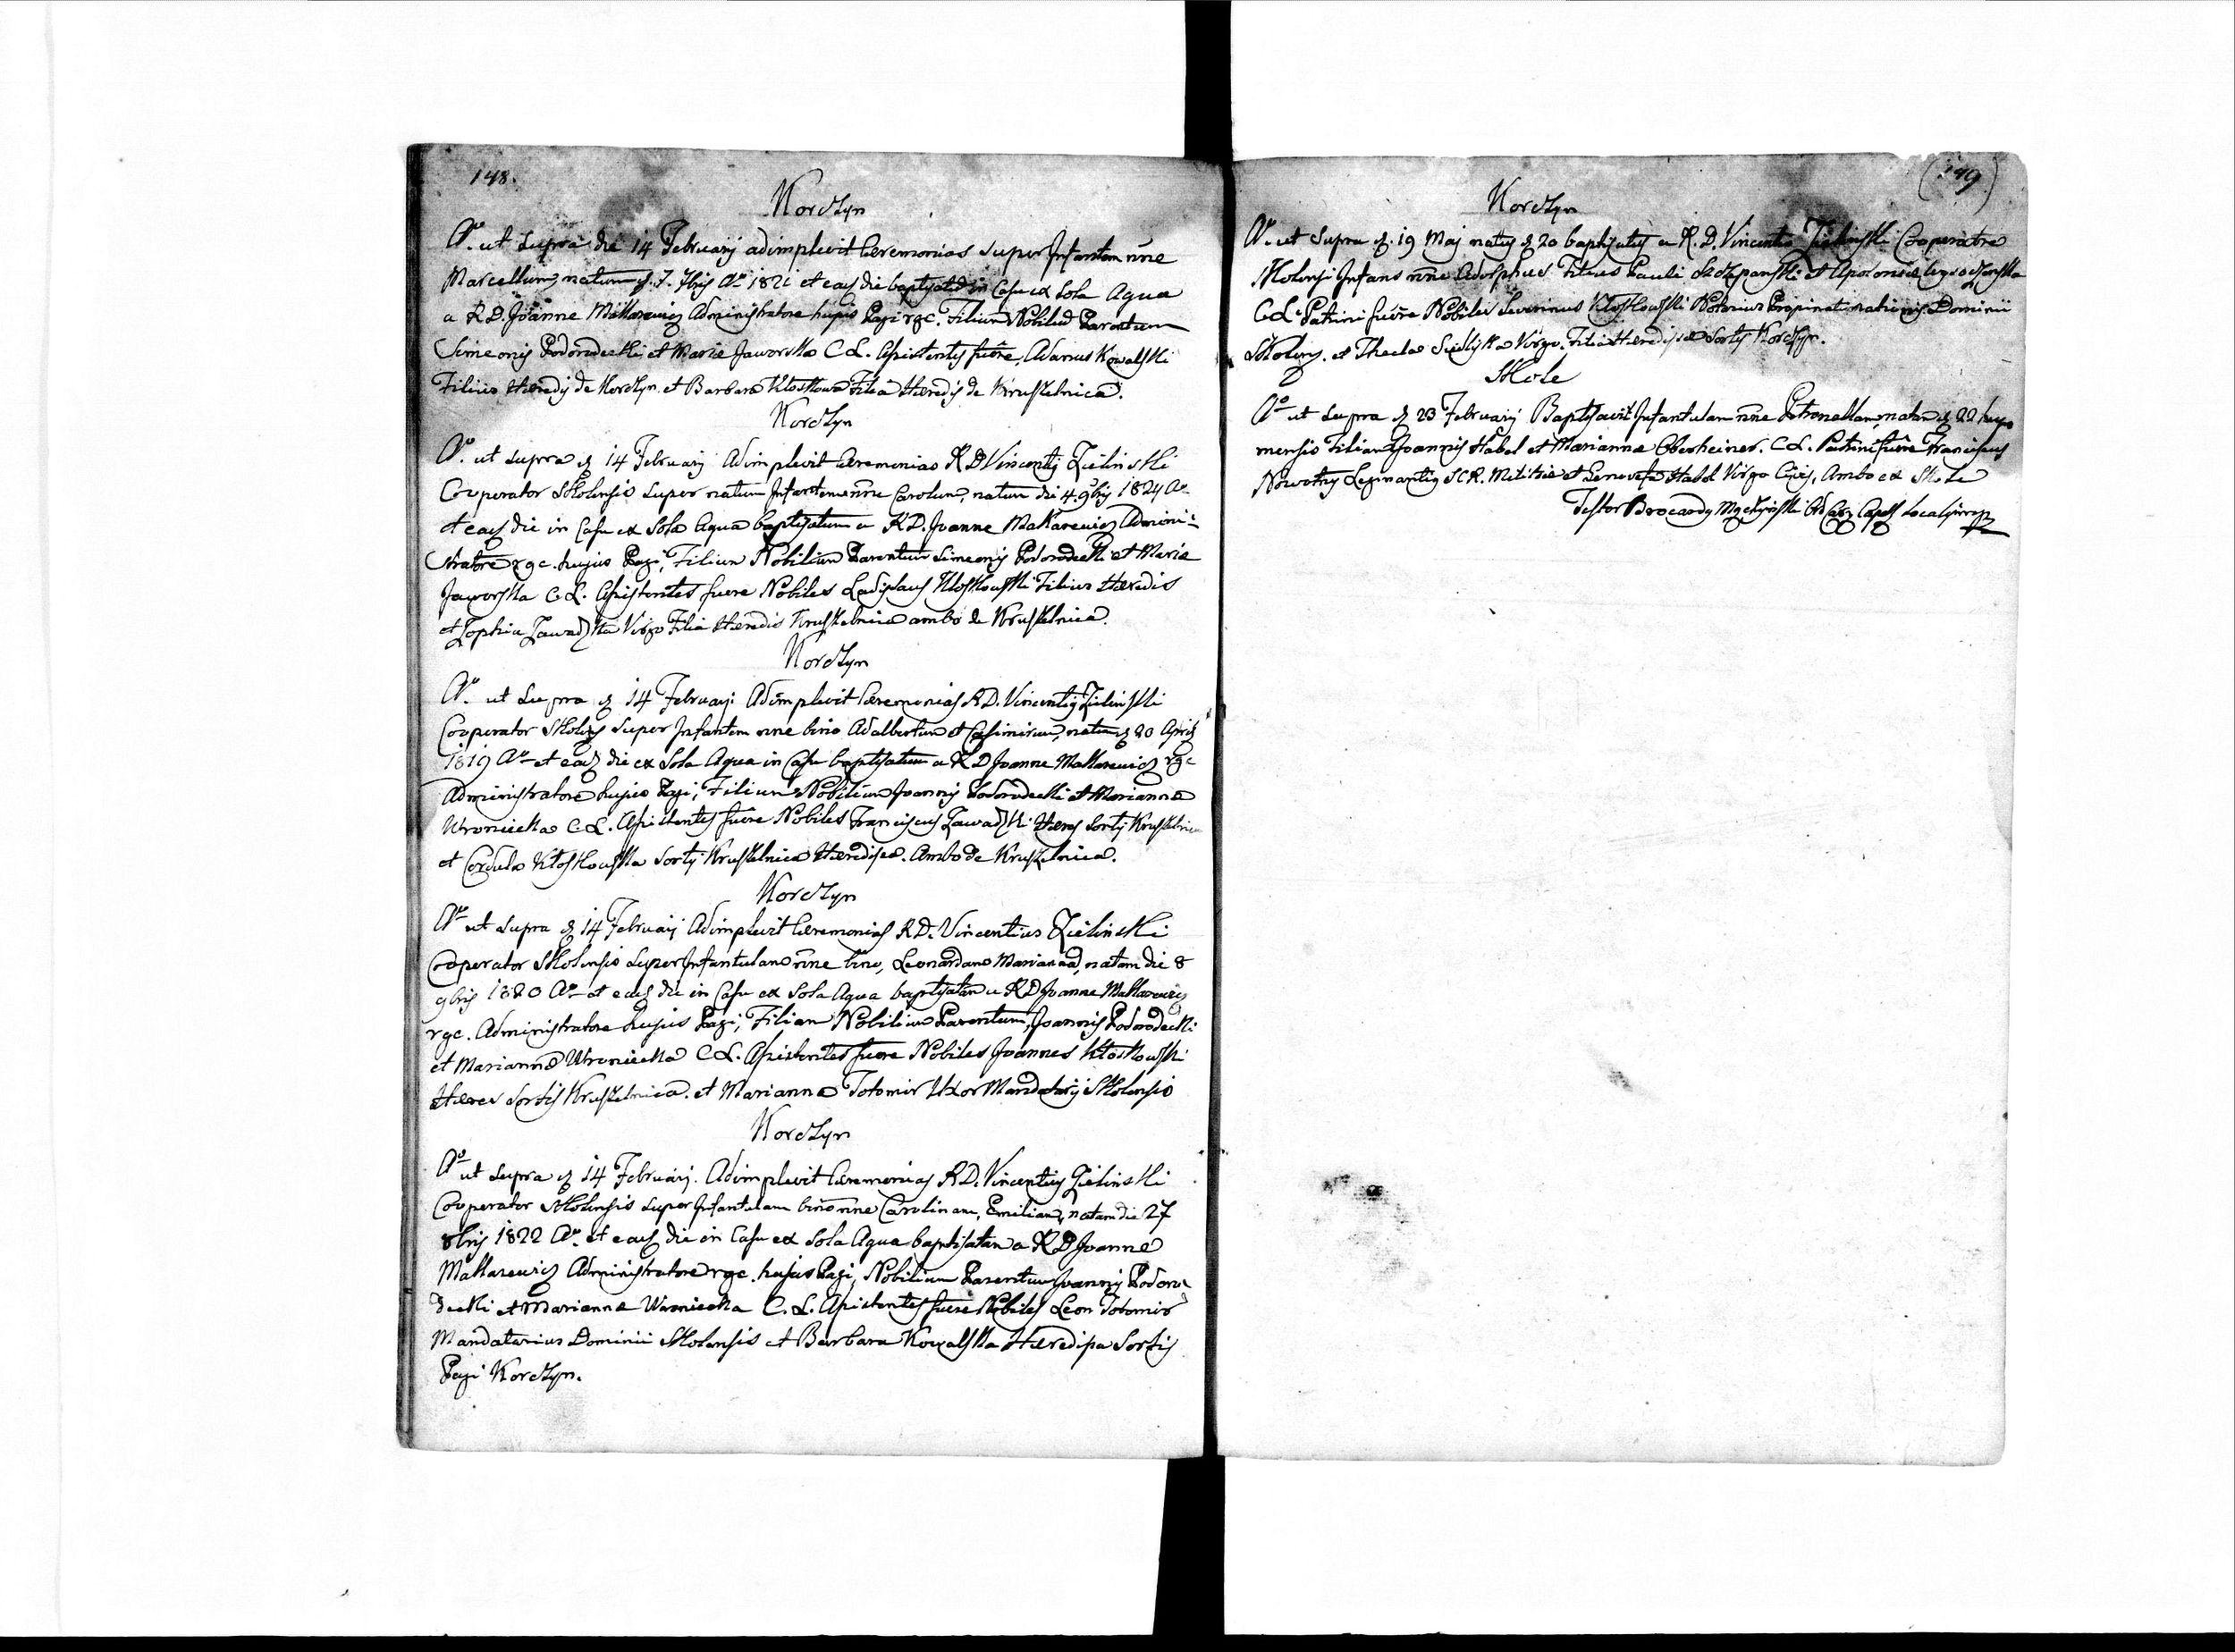 148.
Korczyn
Aº. ut supra die 14 Februarij adimplevit Ceremonias super Infantem nne
Marcellum, natum d. 7. 7bris Aº 1821 et ead die baptisatū in Casu ex sola Aqua
a R.D. Joanne Makarewicz Administratore hujus Pagi rgc. Filium Nobiliū Parentum
Simeonis Podorodecki et Mariæ Jaworska C.L. Assistentes fuêre, Adamus Kowalski
Filius Hæredis de Korczyn et Barbara Kłoskowa Filia Hæredis de Kruszelnica.
Korczyn
Aº. ut supra d 14 Februarij Adimplevit Ceremonias R D Vincentiꝯ Zielinski
Cooperator Skolensis super natum Infantem nne Carolum, natum die 4. 9bris 1824 Aº
et ead die in Casu ex sola Aqua baptisatum a R D. Joanne Makarewicz Admini-
stratore rgc. hujus Pagi, Filium Nobilium Parentum Simeonis Podorodecki et Mariæ
Jaworska C.L. Assistentes fuere Nobiles Ladislaus Kłoskowski Filius Hæredis
et Zophia Zawadzka Virgo Filia Hæredis Kruszelnica ambo de Kruszelnica.
Korczyn
Aº. ut supra d 14 Februarij Adimplevit Ceremonias R D. Vincentiꝯ Zielinski
Cooperator Skolens super Infantem nne bino Adalbertum et Casimirum, natum d 20 Aprilis
1819 Aº et ead die ex sola Aqua in Casu baptisatum a R D Joanne Makarewicz rgc
Administratore hujus Pagi, Filium Nobilium Joannis Podorodecki et Mariannæ
Wroniecka C.L. Assistentes fuêre Nobiles Franciscus Zawadzki Hæres Sortis Kruszelnica
et Cordula Kłoskowska Sortis Kruszelnica Hæredissa. Ambo de Kruszelnica.
Korczyn
Aº ut supra d 14 Februarij Adimplevit Ceremonias R D. Vincentius Zielinski
Cooperator Skolensis super Infantulam nne bino, Leonardam Mariannā, natam die 8
9bris 1820 Aº et ead die in Casu ex sola Aqua baptisatam a R D Joanne Makarewicz
rgc. Administratore hujus Pagi, Filiam Nobilium Parentum, Joannis Podorodecki
et Mariannæ Wroniecka C.L. Assistentes fuere Nobiles Joannes Kłoskowski
Hæres Sortis Kruszelnica. et Marianna Totomir Uxor Mandatarij Skolensis
Korczyn
Aº ut supra d 14 Februarij. Adimplevit Ceremonias R D. Vincentius Zielinski
Cooperator Skolensis super Infantulam bino nne Carolinam, Emiliam, natam die 27
8bris 1822 Aº. et ead die in Casu ex sola Aqua baptisatam a R D Joanne
Makarewicz Administratore rgc. hujus Pagi, Nobilium Parentum Joannis Podoro-
decki et Mariannæ Wroniecka C.L. Assistentes fuere Nobiles Leon Totomir
Mandatarius Dominii Skolensis et Barbara Kowalska Hæredissa Sortis
Pagi Korczyn.
(149)
Korczyn
Aº. ut supra d. 19 Maj natus d 20 baptisatus a R. D. Vincentio Zielinski Cooperatre
Skolensi Infans nne Adolphus Filius Pauli Szczepanski et Apoloniæ
C.L. Patrini fuêre Nobiles Severinus Kłoskowski Notarius Propinationis Dominii
Skolens. et Thecla Virgo. Filia Hæredissæ Sortis Korczyn.
Skole
Aº ut supra d 23 Februarij Baptisavi Infantulam nne Petronellam, natam d 22 hujus
mensis Filiam Joannis Habel et Marianna Oberheiner. C.L. Patrini fuêre Franciscus
Nowotny S C R. Militiæ et Genovefa Habel Virgo Civis, Ambo ex Skole
Testor Brocardus Capell Local